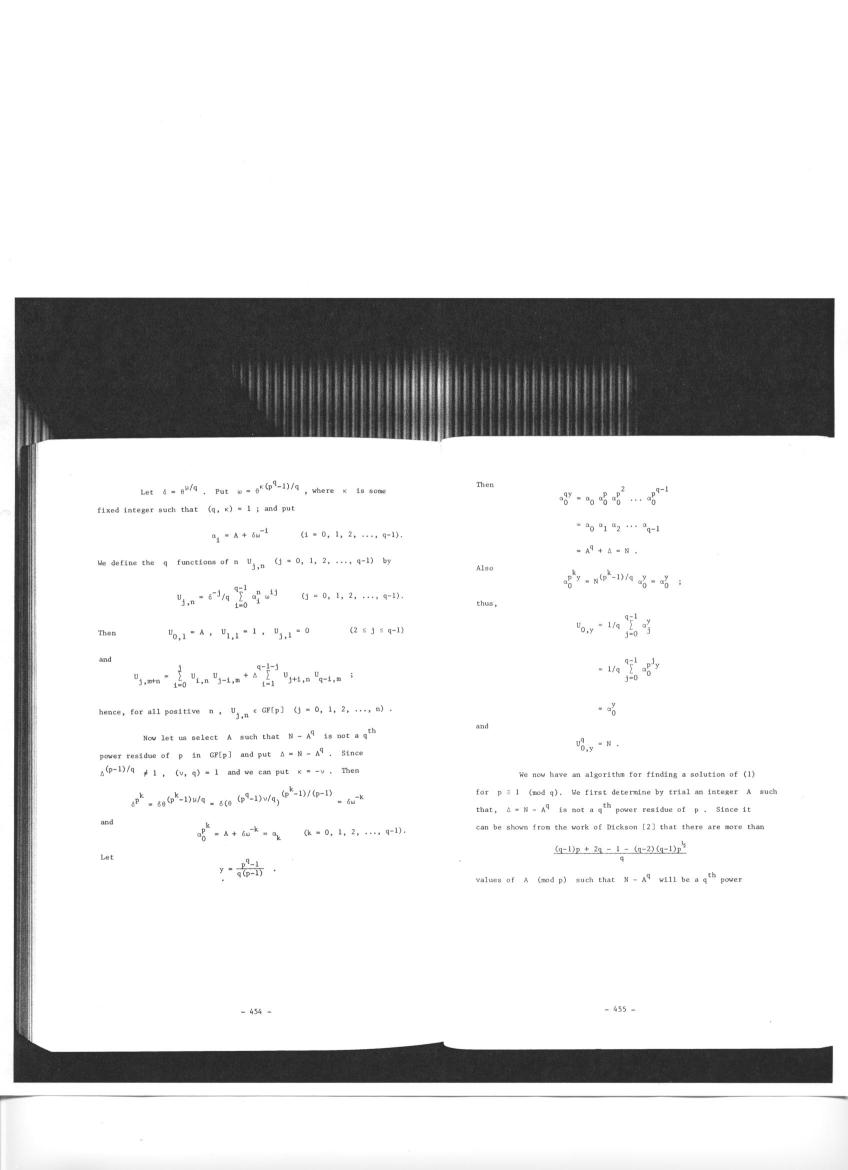 Let δ = θ^{μ/q} . Put ω = θ^{κ(p^q-1)/q} , where κ is some
fixed integer such that (q, κ) = 1 ; and put
α_i = A + δω^{-1} (i = 0, 1, 2, ..., q-1).
We define the q functions of n U_{j,n} (j = 0, 1, 2, ..., q-1) by
U_{j,n} = δ^{-j}/q Σ_{i=0}^{q-1} α_i^n ω^{ij} (j = 0, 1, 2, ..., q-1).
Then U_{0,1} = A , U_{1,1} = 1 , U_{j,1} = 0 (2 ≤ j ≤ q-1)
and
U_{j,m+n} = Σ_{i=0}^{j} U_{i,n} U_{j-i,m} + Δ Σ_{i=1}^{q-1-j} U_{j+i,n} U_{q-i,m} ;
hence, for all positive n , U_{j,n} ε GF[p] (j = 0, 1, 2, ..., n) .
Now let us select A such that N - A^q is not a q^{th}
power residue of p in GF[p] and put Δ = N - A^q . Since
Δ^{(p-1)/q} ≠ 1 , (ν, q) = 1 and we can put κ = -ν . Then
δ^{p^k} = δθ^{(p^k-1)μ/q} = δ(θ^{(p^q-1)ν/q})^{(p^k-1)/(p-1)} = δω^{-k}
and
α_0^{p^k} = A + δω^{-k} = α_k (k = 0, 1, 2, ..., q-1).
Let
y = \frac{p^q-1}{q(p-1)} .
- 454 -
Then
α_0^{qy} = α_0 α_0^p α_0^{p^2} ... α_0^{p^{q-1}}
= α_0 α_1 α_2 ... α_{q-1}
= A^q + Δ = N .
Also
α_0^{p^k y} = N^{(p^k-1)/q} α_0^y = α_0^y ;
thus,
U_{0,y} = 1/q Σ_{j=0}^{q-1} α_j^y
= 1/q Σ_{j=0}^{q-1} α_0^{p^j y}
= α_0^y
and
U_{0,y}^q = N .
We now have an algorithm for finding a solution of (1)
for p ≡ 1 (mod q). We first determine by trial an integer A such
that, Δ = N - A^q is not a q^{th} power residue of p . Since it
can be shown from the work of Dickson [2] that there are more than
\frac{(q-1)p + 2q - 1 - (q-2)(q-1)p^{½}}{q}
values of A (mod p) such that N - A^q will be a q^{th} power
- 455 -